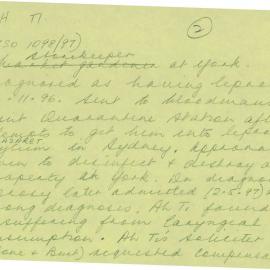 H TI
②
CSO 1098/97)
Storekeeper
market gardener at York.
agnosed as having lepros
.11.96. Sent to Woodman
int Quarantine Station aft
empts to get him into lepro
LAZARET
in Sydney. Approva
en to disinfect & destroy a
operty at York. On diagnos
prosy later admitted (2.5.97)
rong diagnosis. Ah Ti found
suffering from laryngeal
nsumption. Ah Ti's solicitor
one & Burt) requested compensa